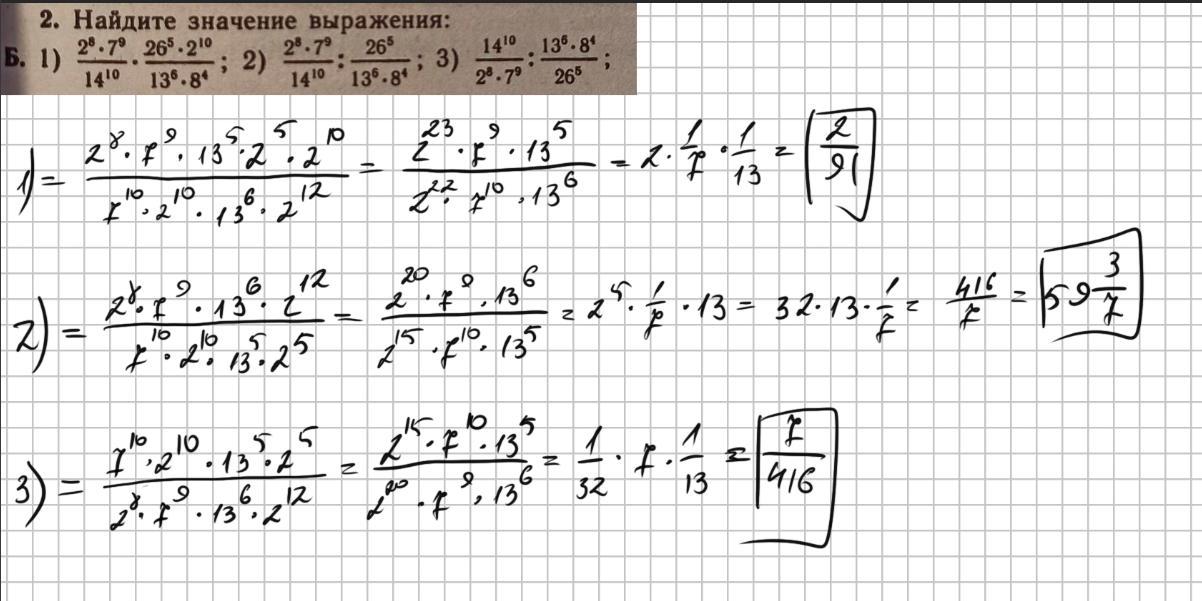 2. Найдите значение выражения:
Б. 1) \frac{2^8 \cdot 7^9}{14^{10}} \cdot \frac{26^5 \cdot 2^{10}}{13^6 \cdot 8^4}; 2) \frac{2^8 \cdot 7^9}{14^{10}} : \frac{26^5}{13^6 \cdot 8^4}; 3) \frac{14^{10}}{2^8 \cdot 7^9} : \frac{13^6 \cdot 8^4}{26^5};
1) = \frac{2^8 \cdot 7^9 \cdot 13^5 \cdot 2^5 \cdot 2^{10}}{7^{10} \cdot 2^{10} \cdot 13^6 \cdot 2^{12}} = \frac{2^{23} \cdot 7^9 \cdot 13^5}{2^{22} \cdot 7^{10} \cdot 13^6} = 2 \cdot \frac{1}{7} \cdot \frac{1}{13} = \frac{2}{91}
2) = \frac{2^8 \cdot 7^9 \cdot 13^6 \cdot 2^{12}}{7^{10} \cdot 2^{10} \cdot 13^5 \cdot 2^5} = \frac{2^{20} \cdot 7^9 \cdot 13^6}{2^{15} \cdot 7^{10} \cdot 13^5} = 2^5 \cdot \frac{1}{7} \cdot 13 = 32 \cdot 13 \cdot \frac{1}{7} = \frac{416}{7} = 59\frac{3}{7}
3) = \frac{7^{10} \cdot 2^{10} \cdot 13^5 \cdot 2^5}{2^8 \cdot 7^9 \cdot 13^6 \cdot 2^{12}} = \frac{2^{15} \cdot 7^{10} \cdot 13^5}{2^{20} \cdot 7^9 \cdot 13^6} = \frac{1}{32} \cdot 7 \cdot \frac{1}{13} = \frac{7}{416}